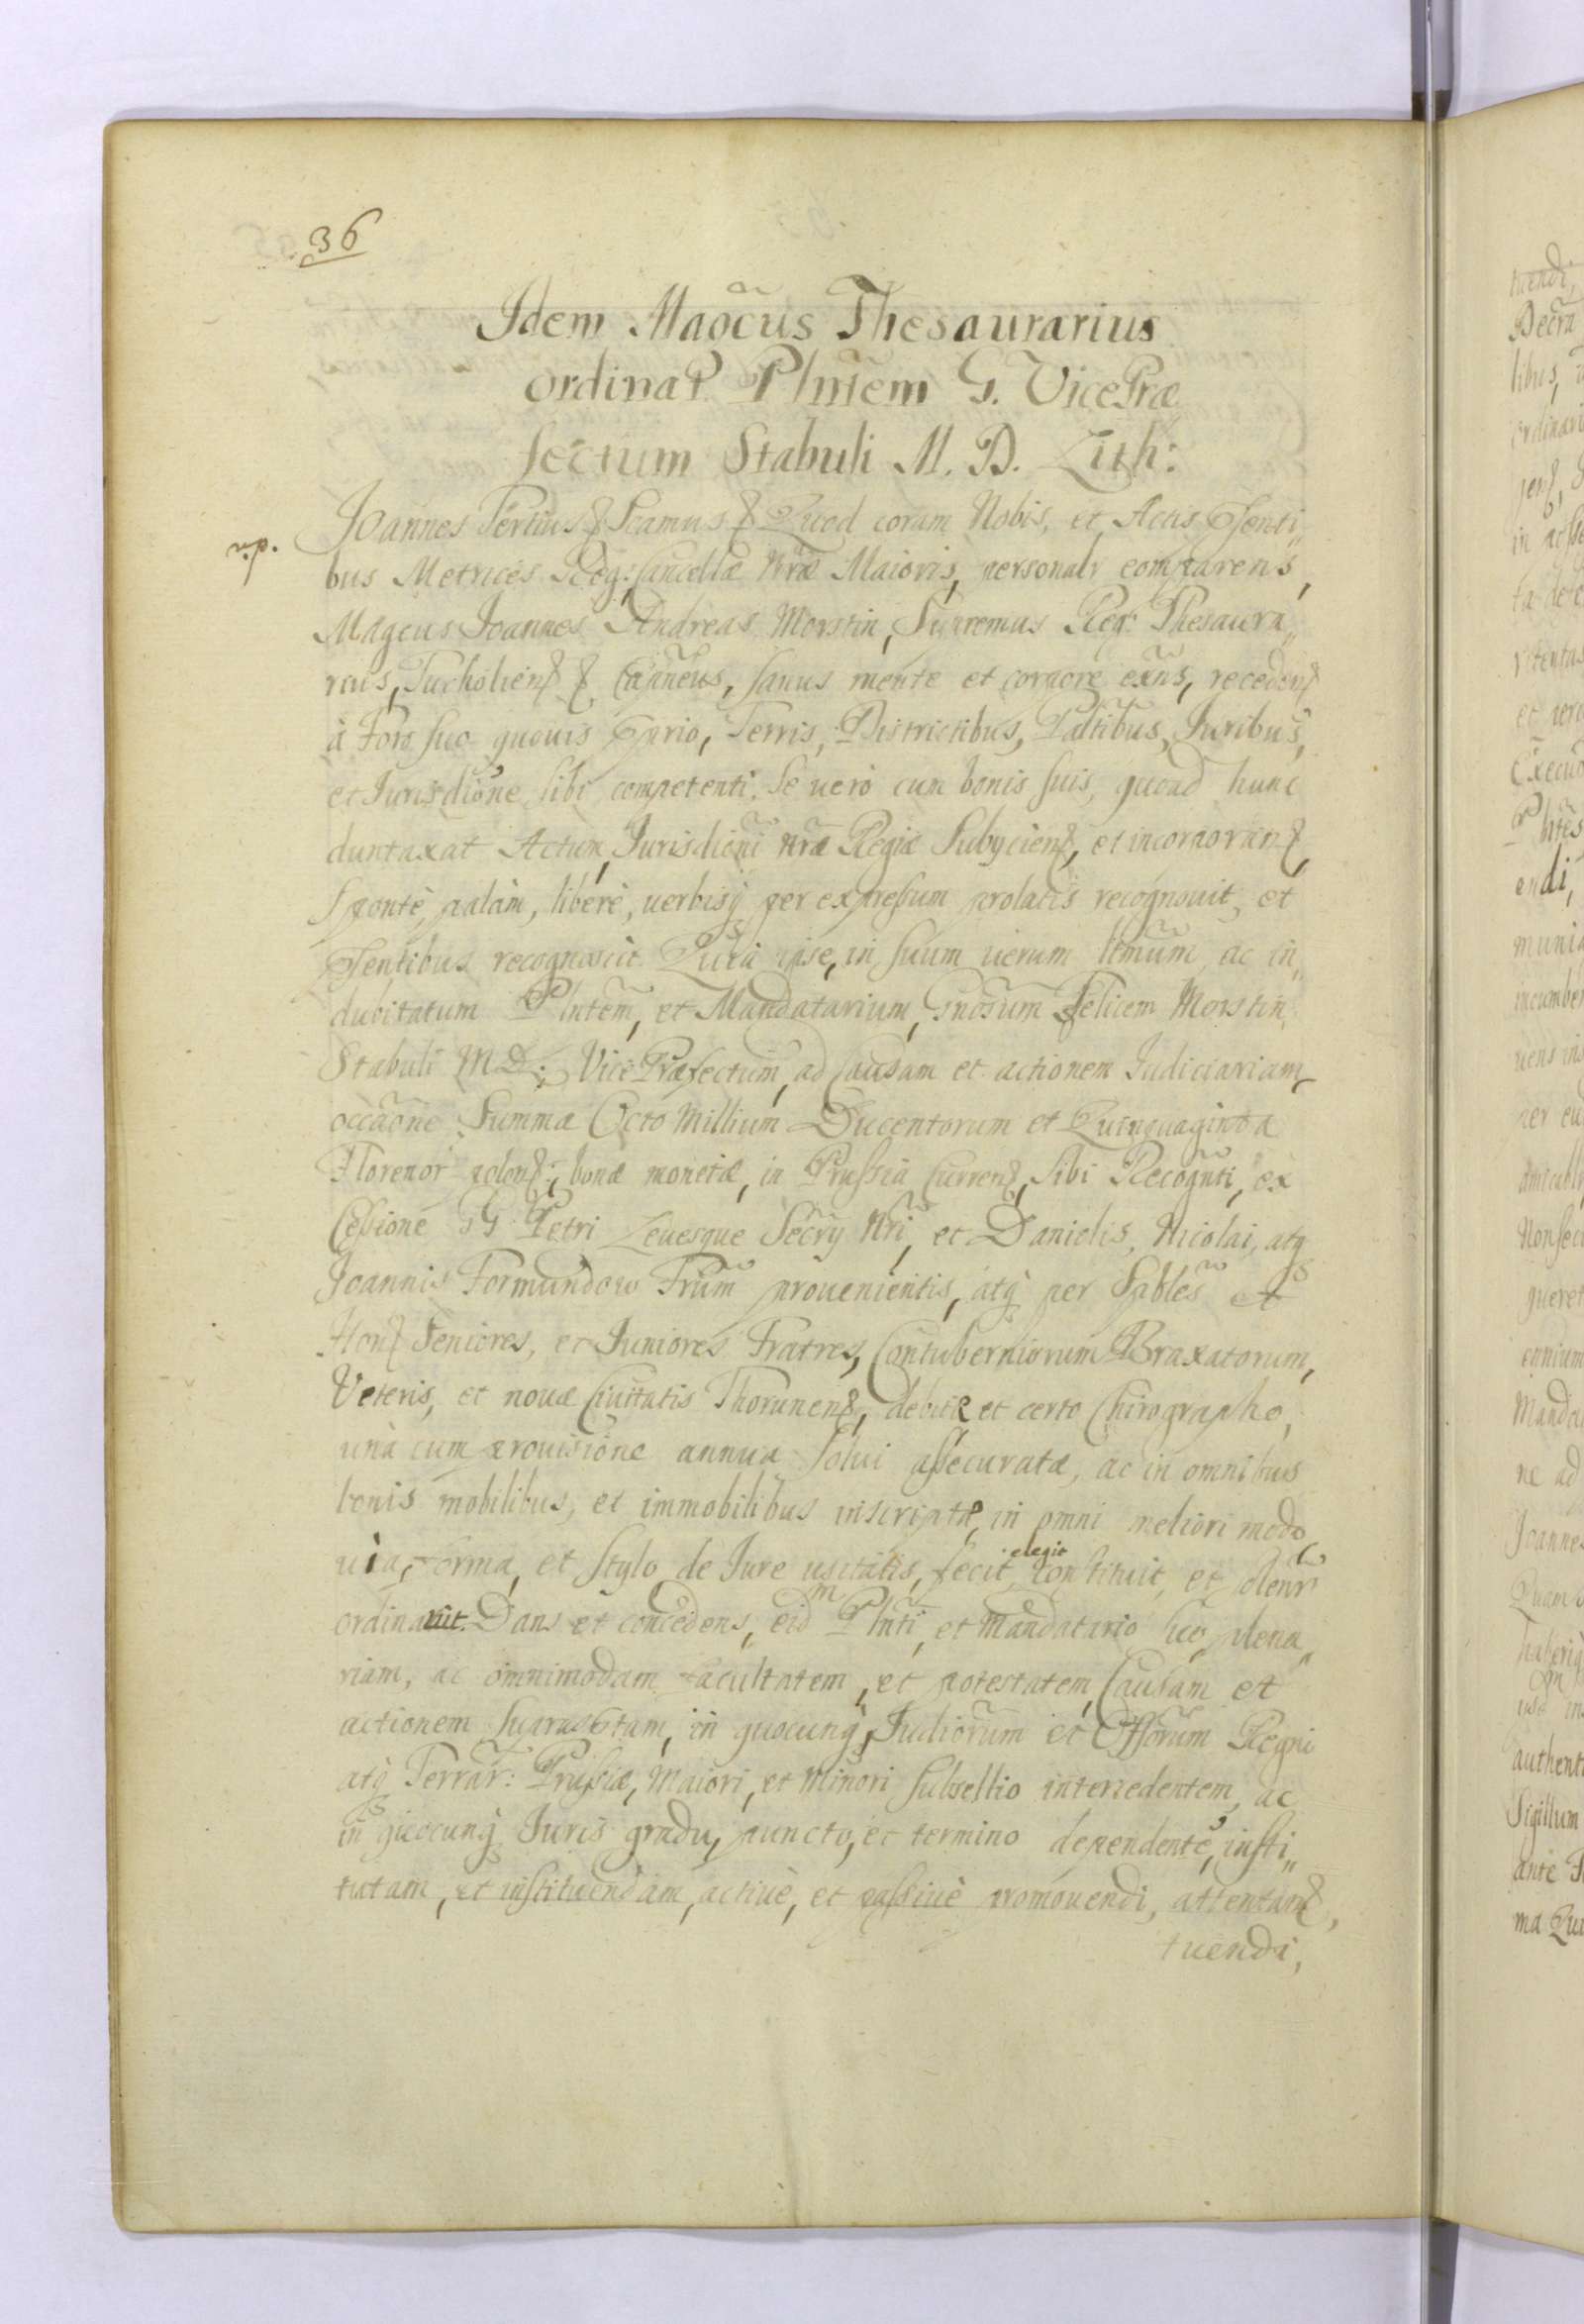 36
Idem Magcus Thesaurarius
ordinat Plntem G. VicePræ
fectum Stabuli M. D. Lith:
Joannes Tertius Scamus Quod coram Nobis, et Actis Psenti„
n.p.
bus Metrices Reg: Cancellæ Nræ Maioris, personalr comparens,
Magcus Joannes Andreas Morstin, Supremus Regt Thesaura„
rius, Tucholiens Capneus, sanus mente et corpore exns, recedens
à Foro suo quouis Pprio, Terris, Districtibus, Paltibus, Juribus,
et Jurisdione sibi competenti. Se uerò cum bonis suis, quoad hunc
duntaxat Actum, Jurisdioni Nræ Regiæ Subyciens, et incorporans,
Spontè, palàm, liberè, uerbisq per expressum prolatis recognouit, et
Psentibus recognoscit Quia ipse, in suum uerum ltmum, ac in„
dubitatum Plntem, et Mandatarium, Gnosum Felicem Morstin,
Stabuli M D: L. VicePræfectum, ad Causam et actionem Judiciariam
occaone Summæ Octo Millium Ducentorum et Quinquaginta
Florenor polons: bonæ monetæ, in Prussia Currens, sibi Recognti, ex
Cessione GG Petri Leuesque Secry Nri, et Danielis, Nicolai, atq
Joannis Formundow Frum prouenientis, atq per Spbles et
Hons Seniores, et Juniores Fratres, Contuberniorum Braxatorum,
Veteris, et nouæ Ciuitatis Thorunens, debitæ et certo Chirographo,
unà cum prouisione annua Solui assecuratæ, ac in omnibus
bonis mobilibus, et immobilibus inscriptæ, in omni meliori modo
uia, forma, et stylo de Jure usitatis, fecit, elegit constituit, et plenr
ordinauit. Dans et concedens, eidm Plnti, et Mandatario suo, plena„
riam, ac omnimodam facultatem, et potestatem, Causam et
actionem suprascptam, in quocunq, Judiorum et Offorum Regni
atq Terrar: Prussiæ, Maiori, et Minori subsellio intercedentem, ac
in quocunq Juris gradu, puncto, et termino dependente, insti„
tutam, et instituendam, actiuè, et passiuè promouendi, attentans,
tuendi,